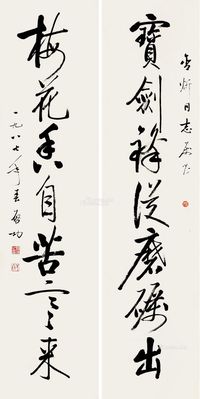 同志
寶劍鋒從磨礪出
梅花香自苦寒来
一九八七年 啟功